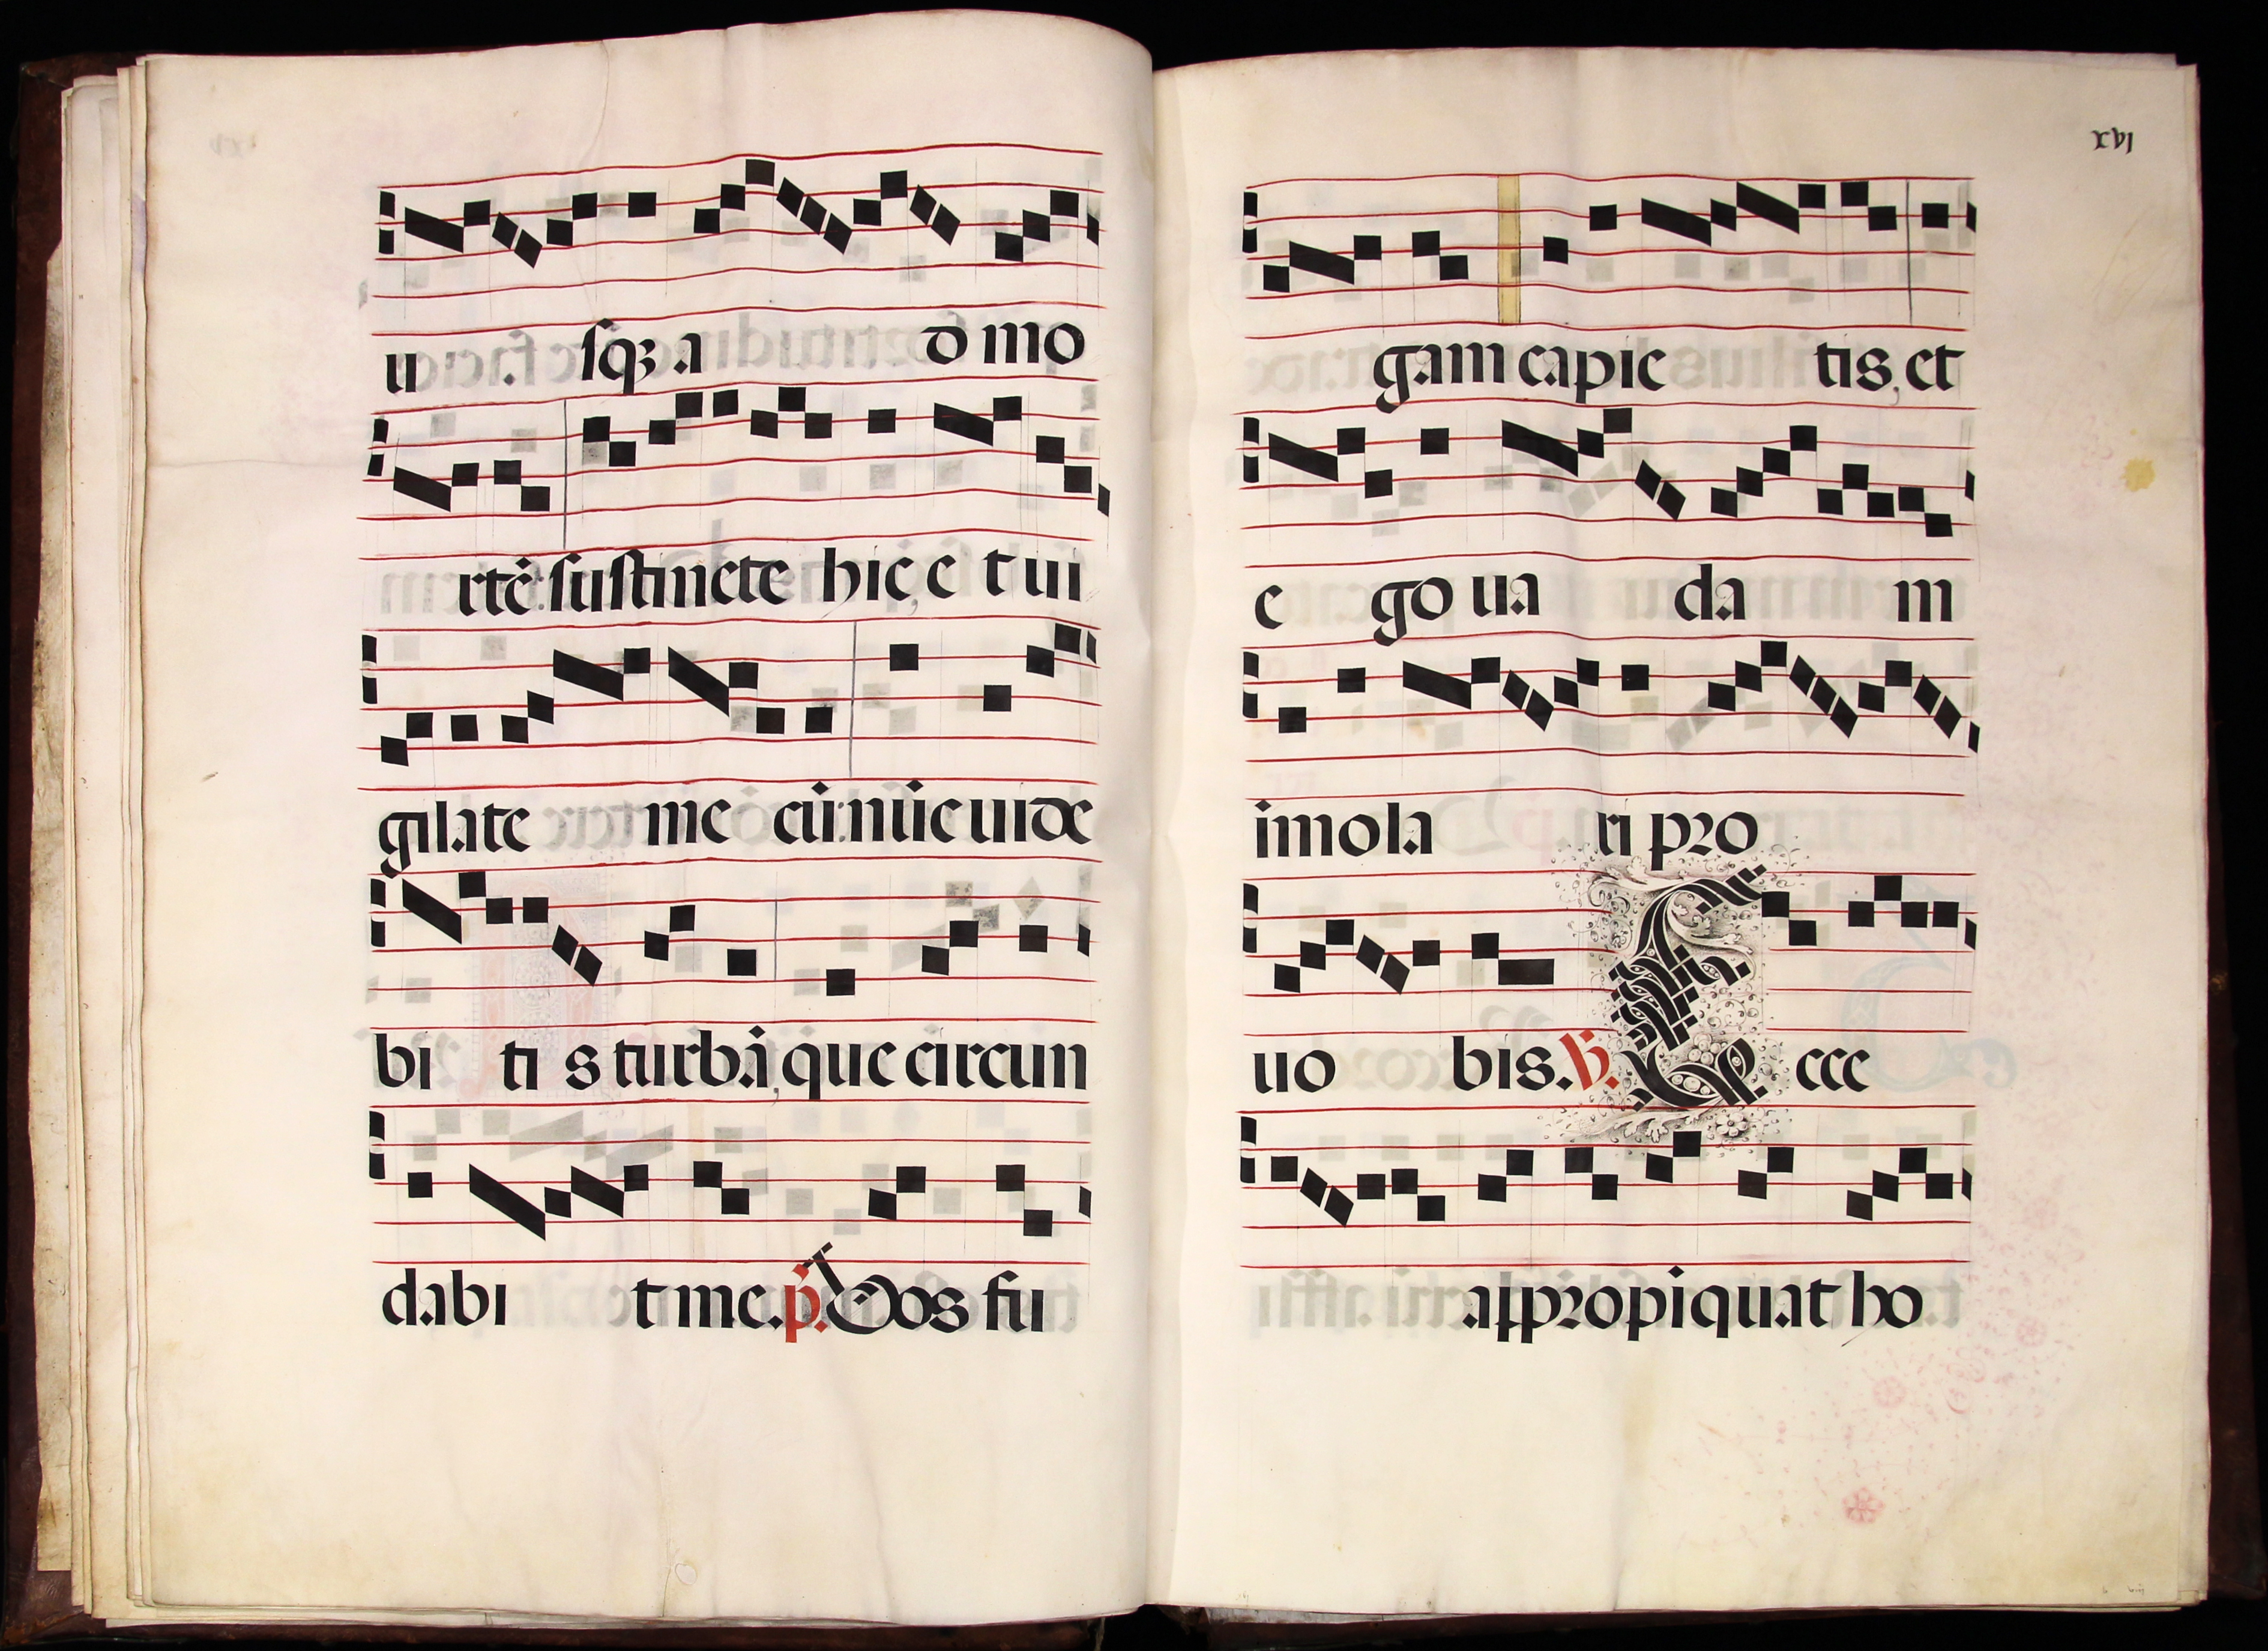 u sqꝫ a d mo
rtē: sustinete hic, e t ui
gilate me cū: nūc uide
bi ti s turbā, que circun
dabi t me. p̄. Uos fu
xvj
gam capie tis, et
e go ua da m
imola ri pro
uo bis. ℣. E cce
appropiquat ho